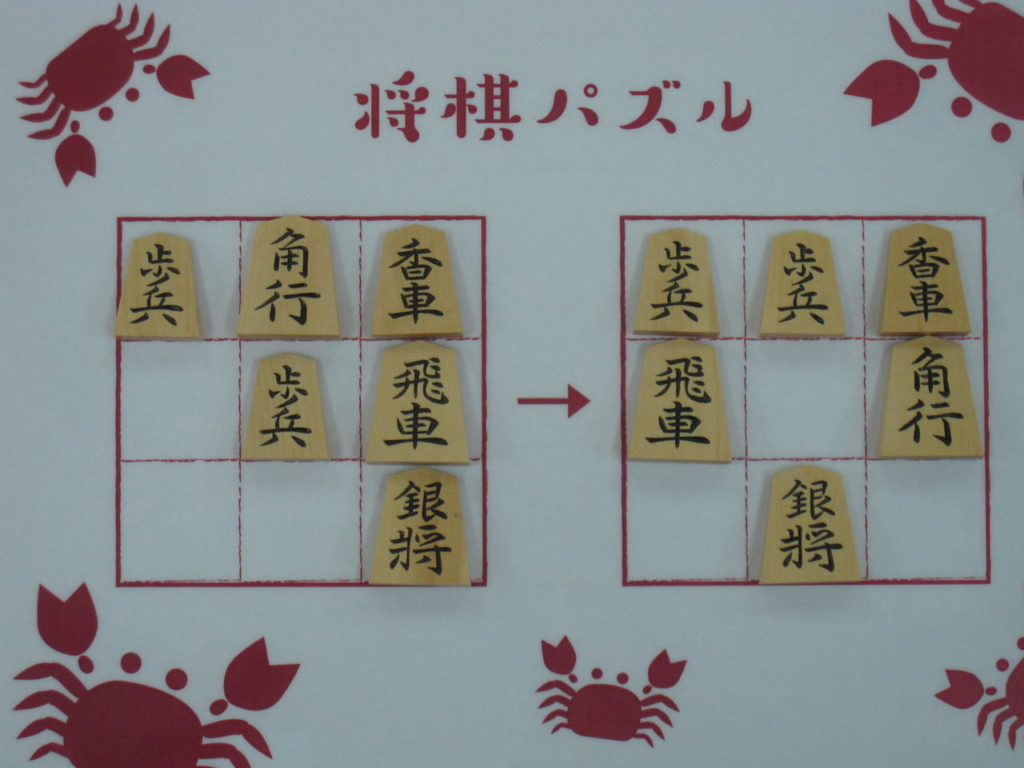 将棋パズル
歩兵 角行 香車 歩兵 歩兵 香車
歩兵 飛車 飛車 角行
銀将 銀将